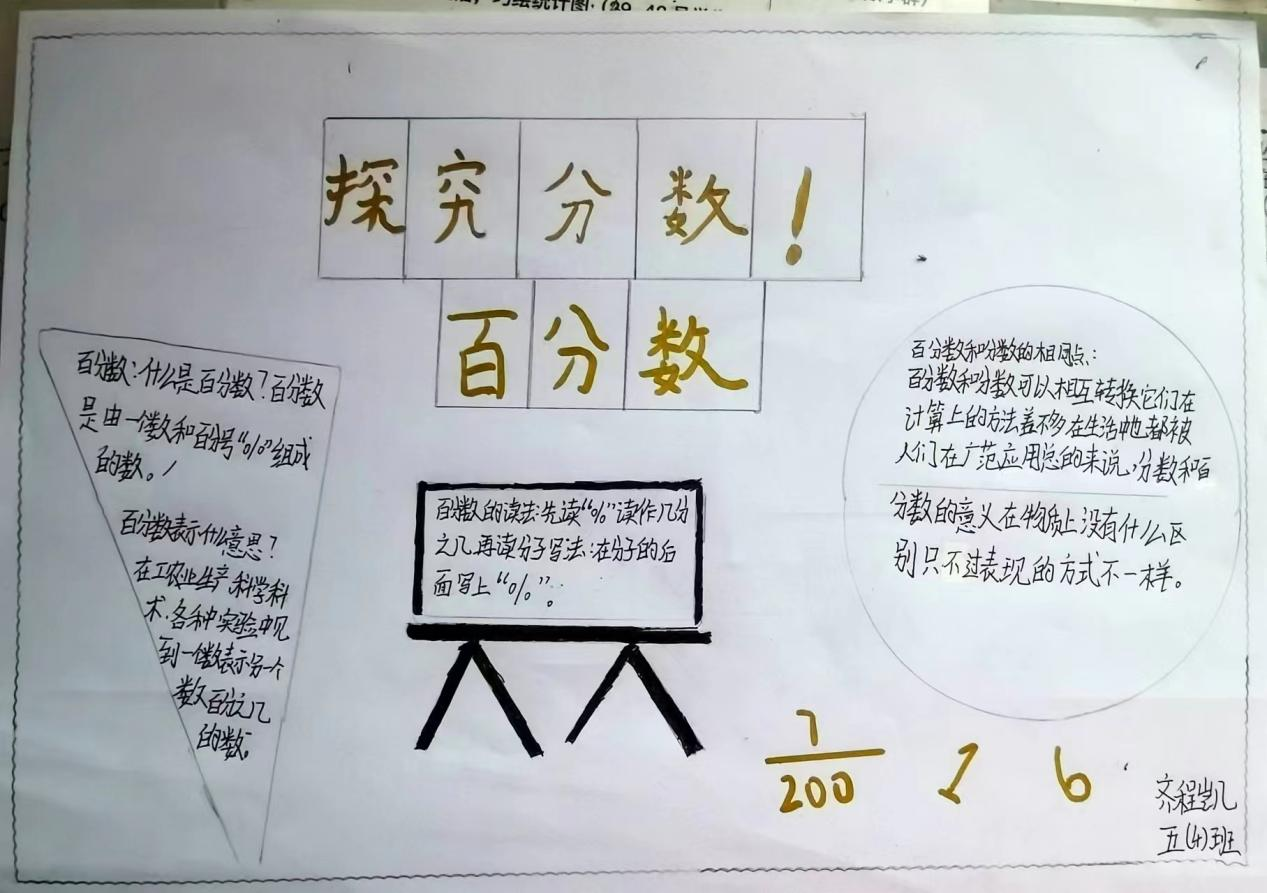 探究分数！
百分数
百分数：什么是百分数？百分数
是由一个数和百分号“%”组成
的数。
百分数表示什么意思？
在工农业生产，科学科
术，各种实验中见
到一个数表示另一个
数百分之几
的数。
百分数的读法：先读“%”读作几分
之几再读分子写法：在分子的后
面写上“%”。
百分数和分数的相同点：
百分数和分数可以相互转换它们在
计算上的方法差不多在生活中也都被
人们在广范应用总的来说，分数和百
分数的意义在物质上没有什么区
别只不过表现的方式不一样。
7
200
1 6
齐程凯
五(4)班